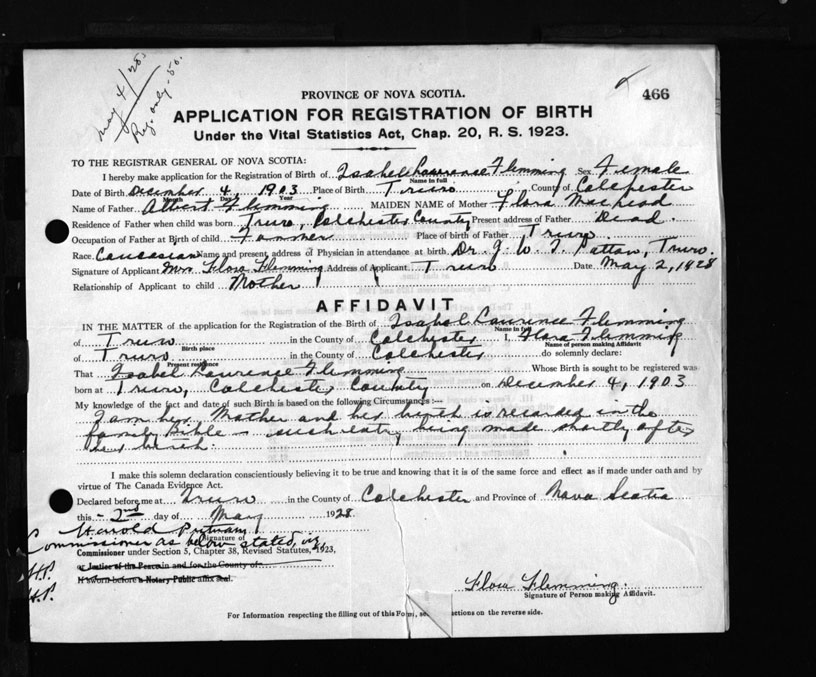 May 4/28.
Reg. only - 50.
466
PROVINCE OF NOVA SCOTIA.
APPLICATION FOR REGISTRATION OF BIRTH
Under the Vital Statistics Act, Chap. 20, R. S. 1923.
TO THE REGISTRAR GENERAL OF NOVA SCOTIA:
I hereby make application for the Registration of Birth of Isabel Laurence Flemming Sex Female
Name in full
Date of Birth December 4, 1903 Place of Birth Truro County of Colchester
Month Day Year
Name of Father Albert Flemming MAIDEN NAME of Mother Flora MacLeod
Residence of Father when child was born Truro, Colchester County Present address of Father Dead.
Occupation of Father at Birth of child Farmer Place of birth of Father Truro
Race Caucasian Name and present address of Physician in attendance at birth Dr. J. W. T. Patton, Truro.
Signature of Applicant Mrs Flora Flemming Address of Applicant Truro Date May 2, 1928
Relationship of Applicant to child Mother
AFFIDAVIT
IN THE MATTER of the application for the Registration of the Birth of Isabel Laurence Flemming
Name in full
of Truro in the County of Colchester I, Flora Flemming
Birth place Name of person making Affidavit
of Truro in the County of Colchester do solemnly declare:
Present residence
That Isabel Laurence Flemming Whose Birth is sought to be registered was
born at Truro, Colchester County on December 4, 1903
My knowledge of the fact and date of such Birth is based on the following Circumstances:—
I am her Mother and her birth is recorded in the
family Bible - such entry being made shortly after
her birth.
I make this solemn declaration conscientiously believing it to be true and knowing that it is of the same force and effect as if made under oath and by
virtue of The Canada Evidence Act.
Declared before me at Truro in the County of Colchester and Province of Nova Scotia
this 2nd day of May 1928.
Harold Putnam
Signature of
Commissioner as below stated, viz
Commissioner under Section 5, Chapter 38, Revised Statutes, 1923,
H.P. or Justice of the Peace in and for the County of
H.P. If sworn before a Notary Public affix seal.
Flora Flemming.
Signature of Person making Affidavit.
For Information respecting the filling out of this Form, see actions on the reverse side.